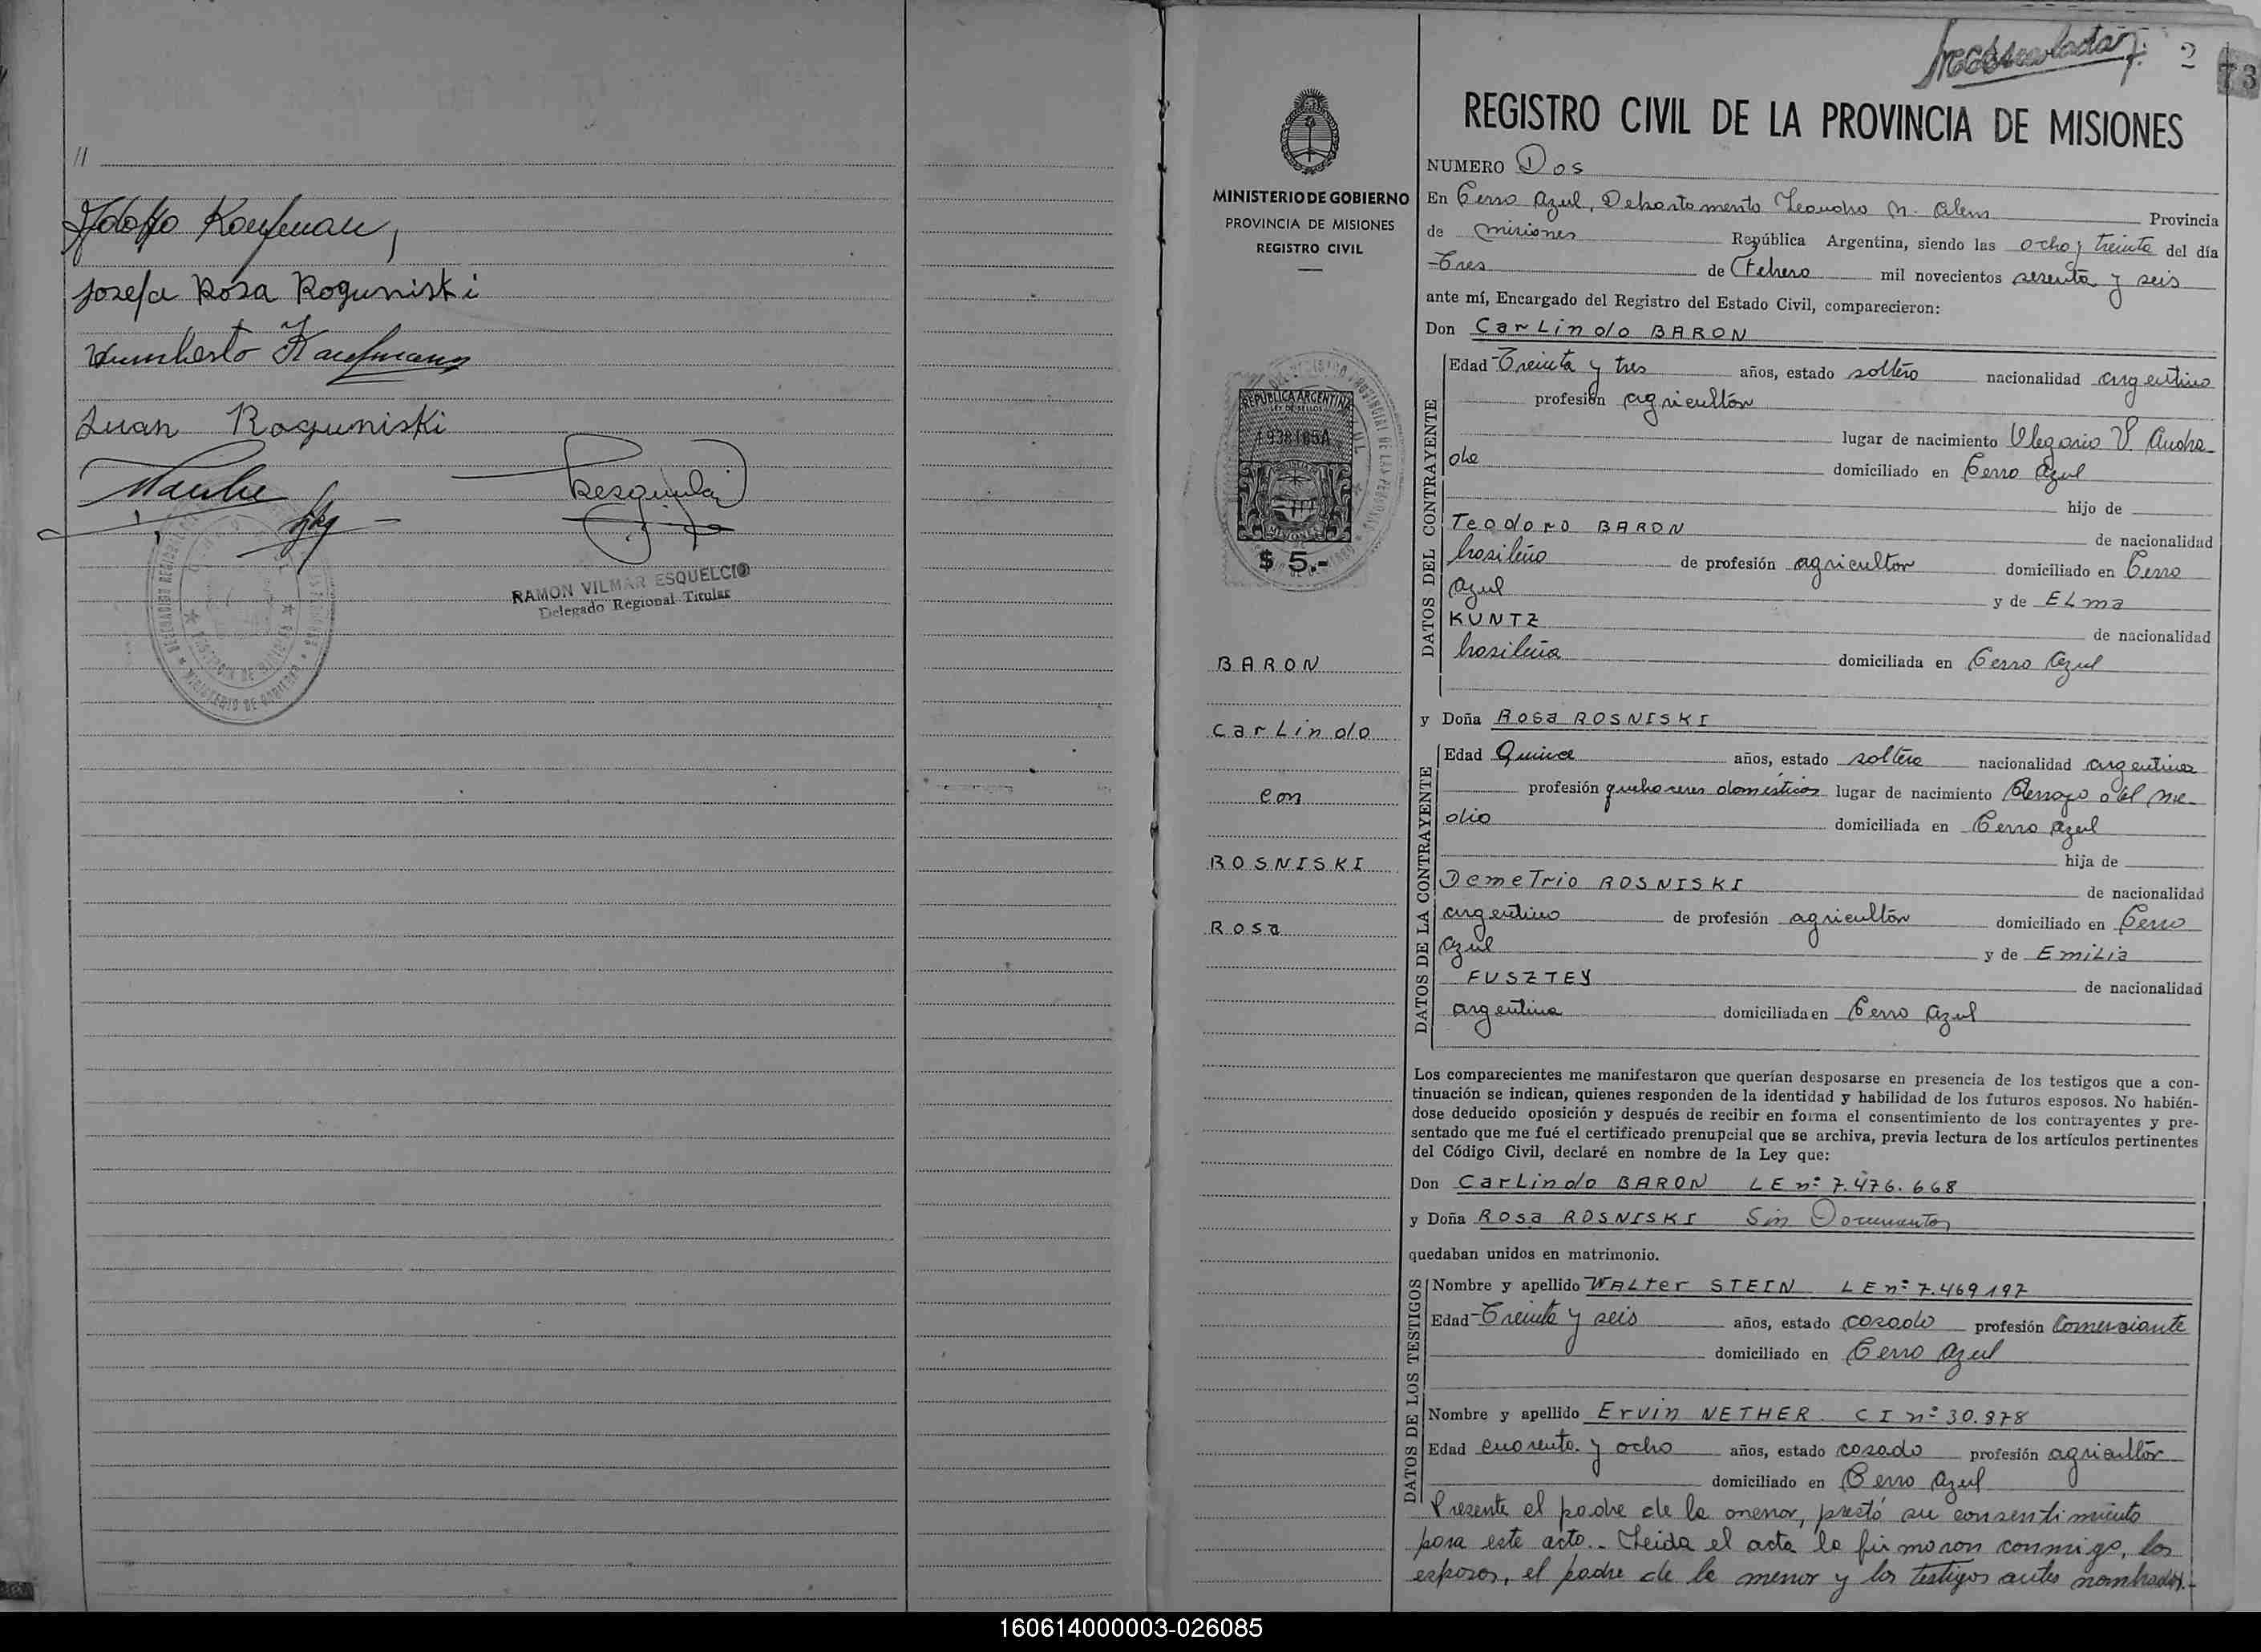 //
Adolfo Kaufman,
Josefa Rosa Roguniski
Humberto Kaufmann
Juan Roguniski
RAMON VILMAR ESQUELCIO
Delegado Regional Titular
2
73
MINISTERIO DE GOBIERNO
PROVINCIA DE MISIONES
REGISTRO CIVIL
REPUBLICA ARGENTINA
LEY DE SELLOS
MISIONES
$ 5.-
BARON
Carlindo
con
ROSNISKI
Rosa
REGISTRO CIVIL DE LA PROVINCIA DE MISIONES
NUMERO Dos
En Cerro Azul, Departamento Leandro N. Alem Provincia
de Misiones República Argentina, siendo las ocho y treinta del día
Tres de Febrero mil novecientos sesenta y seis
ante mí, Encargado del Registro del Estado Civil, comparecieron:
Don Carlindo BARON
DATOS DEL CONTRAYENTE
Edad Treinta y tres años, estado soltero nacionalidad argentino
profesión agricultor
lugar de nacimiento Olegario V. Andra-
de domiciliado en Cerro Azul
hijo de
Teodoro BARON de nacionalidad
brasileño de profesión agricultor domiciliado en Cerro
Azul y de ELma
KUNTZ de nacionalidad
brasileña domiciliada en Cerro Azul
y Doña Rosa ROSNISKI
DATOS DE LA CONTRAYENTE
Edad Quince años, estado soltera nacionalidad argentina
profesión quehaceres domésticos lugar de nacimiento Picada del Me-
dio domiciliada en Cerro Azul
hija de
Demetrio ROSNISKI de nacionalidad
argentino de profesión agricultor domiciliado en Cerro
Azul y de Emilia
FUSZTEY de nacionalidad
argentina domiciliada en Cerro Azul
Los comparecientes me manifestaron que querían desposarse en presencia de los testigos que a con-
tinuación se indican, quienes responden de la identidad y habilidad de los futuros esposos. No habién-
dose deducido oposición y después de recibir en forma el consentimiento de los contrayentes y pre-
sentado que me fué el certificado prenupcial que se archiva, previa lectura de los artículos pertinentes
del Código Civil, declaré en nombre de la Ley que:
Don Carlindo BARON LE nº 7.476.668
y Doña Rosa ROSNISKI Sin Documentos
quedaban unidos en matrimonio.
DATOS DE LOS TESTIGOS
Nombre y apellido WALter STEIN LE nº 7.469197
Edad Treinta y seis años, estado casado profesión Comerciante
domiciliado en Cerro Azul
Nombre y apellido Ervin NETHER CI nº 30.878
Edad cuarenta y ocho años, estado casado profesión agricultor
domiciliado en Cerro Azul
Presente el padre de la menor, prestó su consentimiento
para este acto.- Leida el acta la firmaron conmigo, los
esposos, el padre de la menor y los testigos antes nombrados.-
160614000003-026085